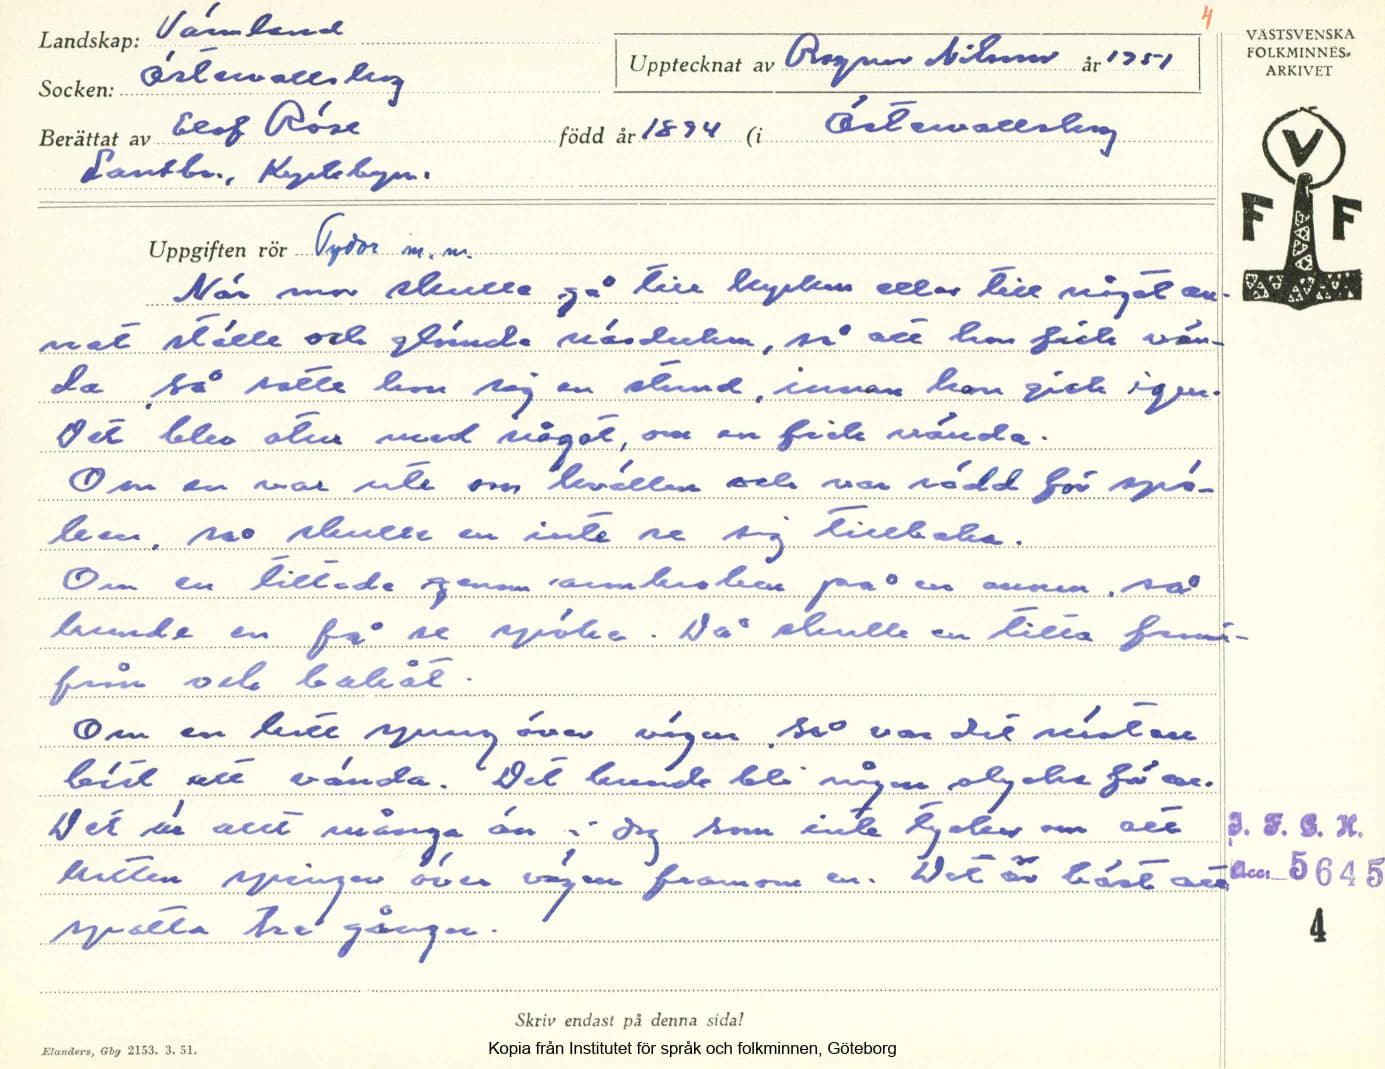 4
Landskap: Värmland
VÄSTSVENSKA
FOLKMINNES-
ARKIVET
Upptecknat av Ragnar Nilsson år 1951
Socken: Östervallskog
Berättat av Elof Röse född år 1894 (i Östervallskog
Lantbr.,
V
F F
Uppgiften rör Tydor m. m.
När mor skulle gå till kyrkan eller till något an-
nat ställe och glömde näsduken, så att hon fick vän-
da, så satte hon sig en stund, innan hon gick igen.
Det blev otur med något, om en fick vända.
Om en var ute om kvällen och var rädd för spö-
ken, så skulle en inte se sig tillbaka.
Om en tittade genom armkroken på en annen, så
kunde en få se spöke. Då skulle en titta frami-
från och bakåt.
Om en katt sprung över vägen, så var det nästan
bäst att vända. Det kunde bli någon olycka för en.
Det är allt många än i dag som inte tycker om att
katten springer över vägen framom en. Det är bäst att
spotta tre gånger.
I. F. G. H.
Acc. 5645
4
Skriv endast på denna sida!
Elanders, Gbg 2153. 3. 51.
Kopia från Institutet för språk och folkminnen, Göteborg